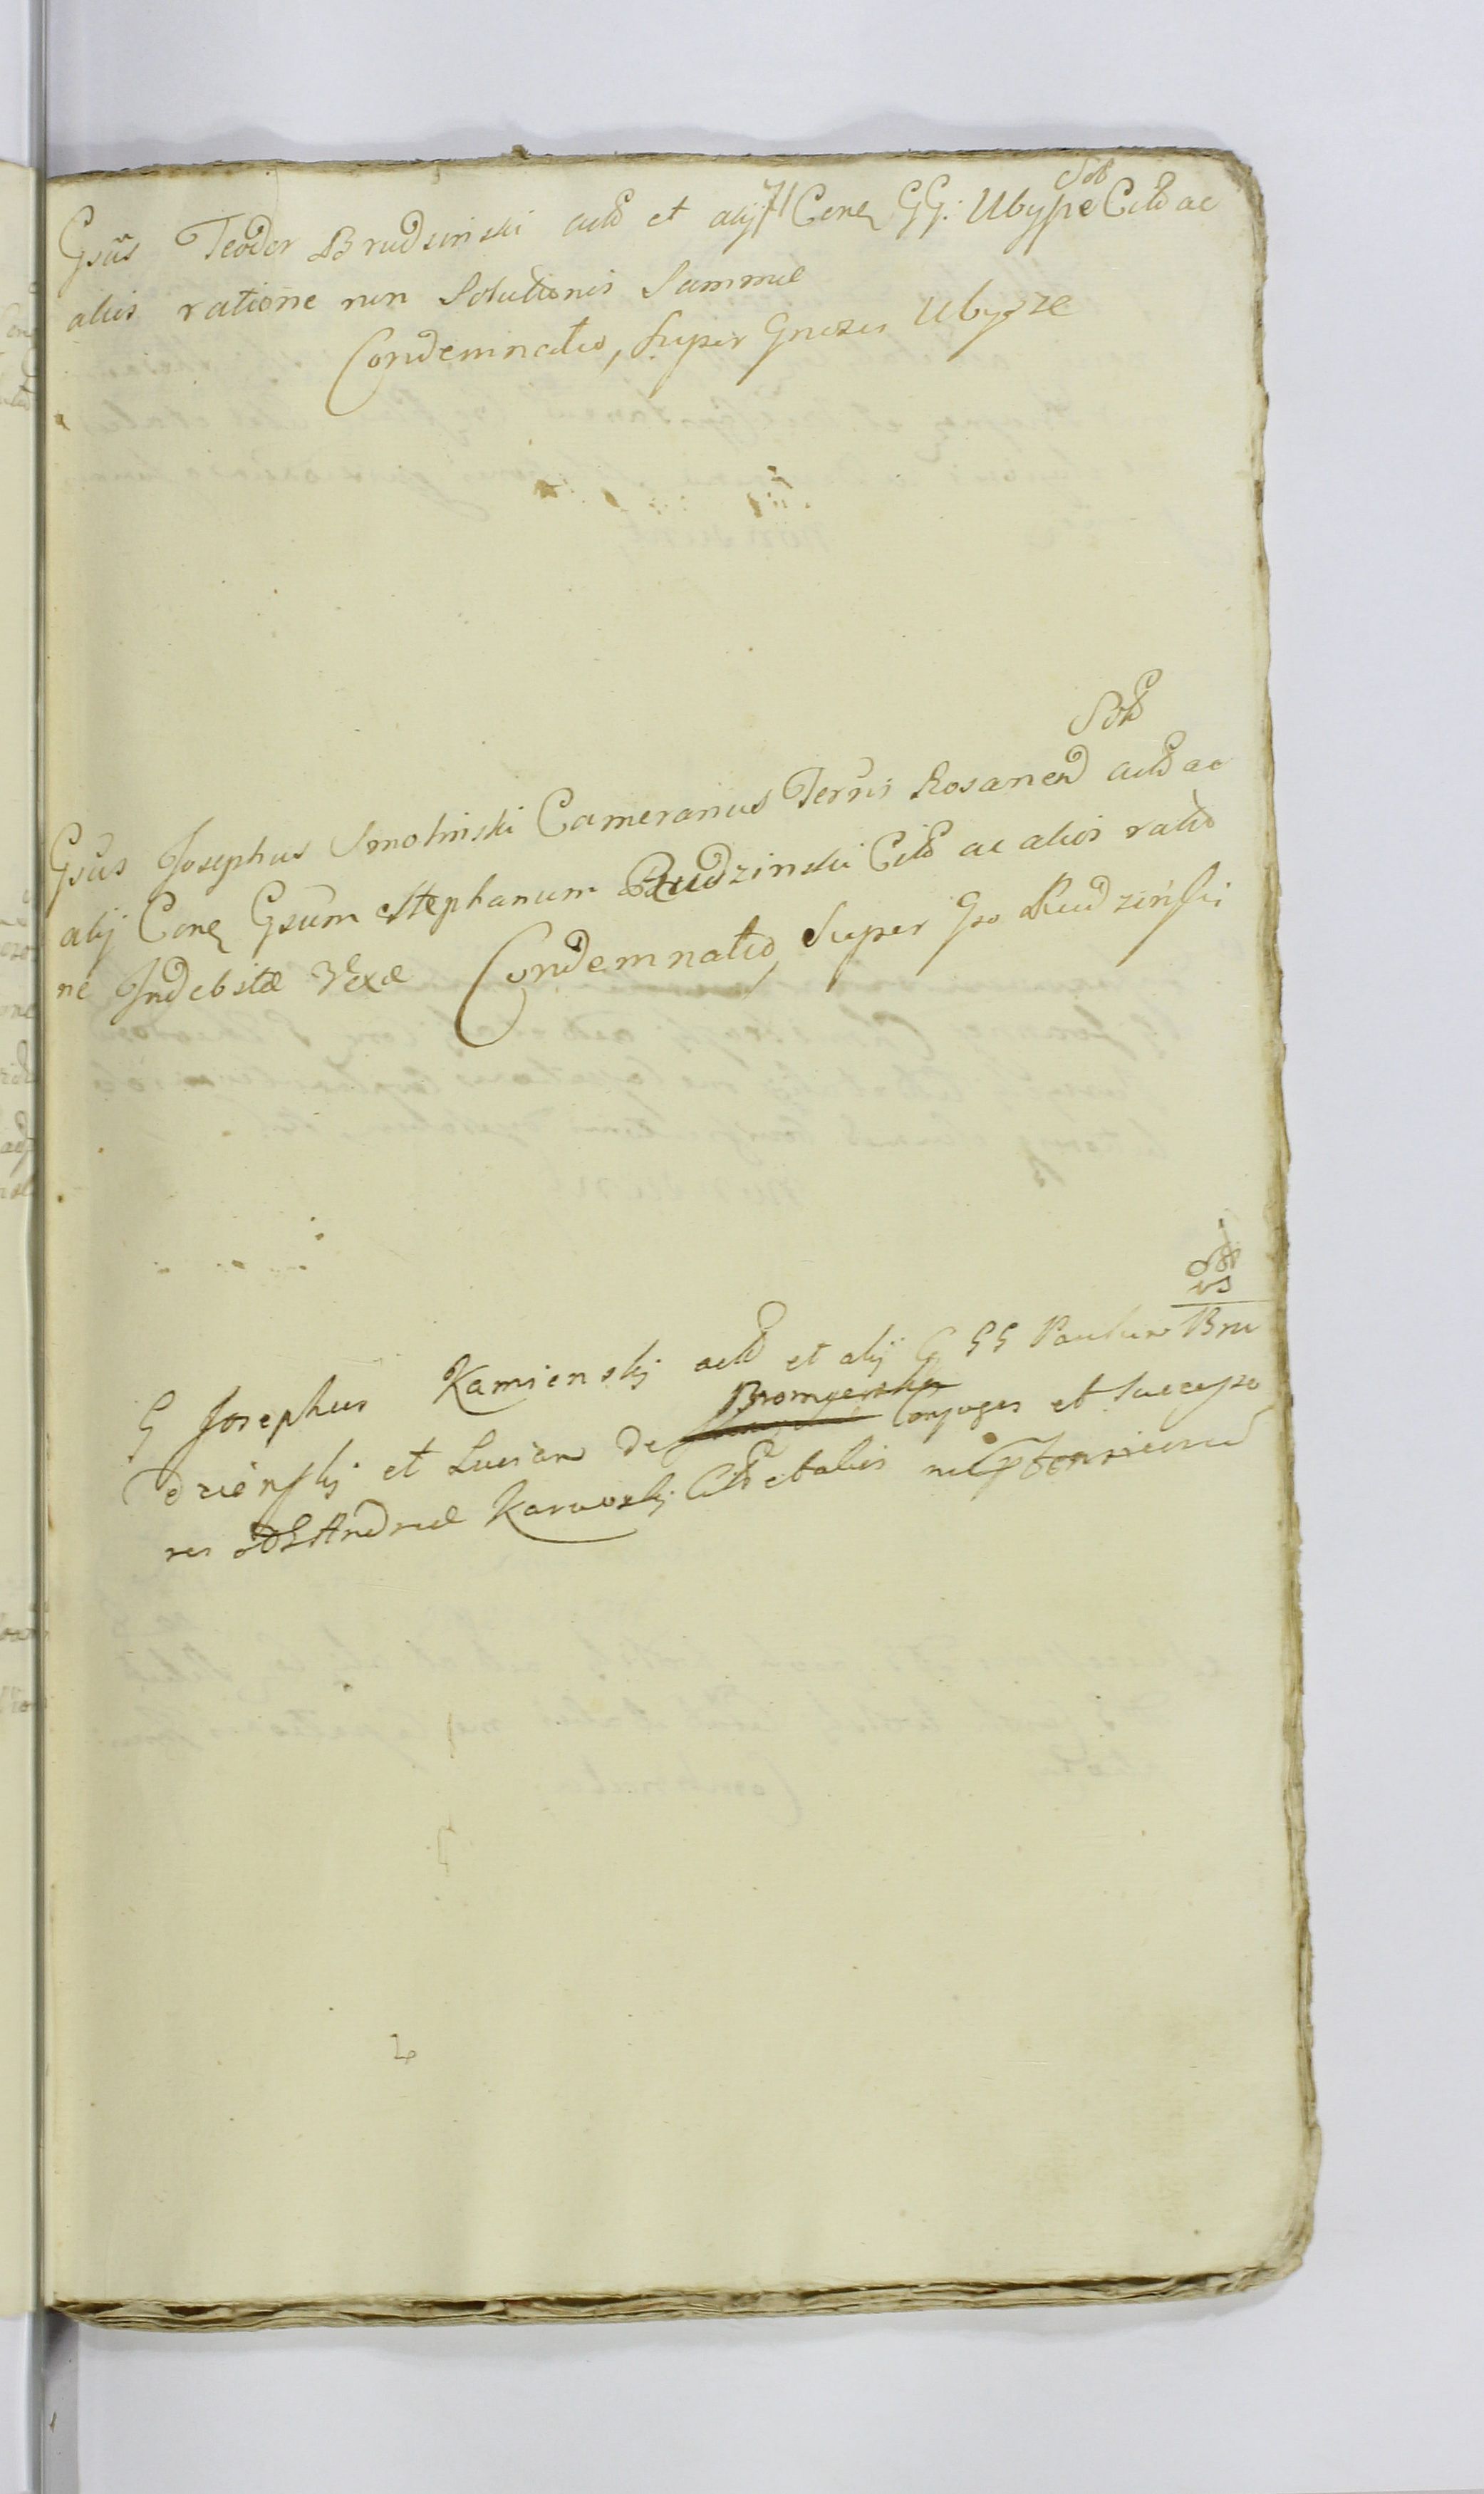 Sol
Gsus Teodor Brudzinski actō et alij 71 Conq GG: Ubysze Citō ac
aliis ratione non Solutionis Summæ
Condemnatio, super Gnosis Ubysze
Solō
Gsus Josephus Smolinski Camerarius Terris Rosanen actō ac
alij Conq Gsum Stephanum Rudzinski Citō ac aliis ratio
ne Indebitæ Vexæ Condemnatio, Super Gso Rudzinski
G Josephus Kamienskj actō et alij C GG Paulum Bru
dzienskj et Lucian De Conjuges et Successo
res Andreæ Karwoskj Citō et aliis